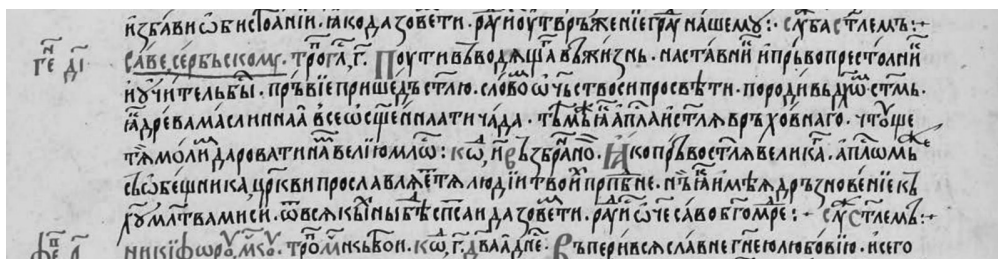 и҆збави ѿ бѣ истоꙗнїи . ꙗко да зовети . раⷣуи и ѹтвръженїе граⷣу нашемꙋ : слꙋⷤба ст҃лемъ :
генⷩ д҃ї савѣ сербьскомꙋ . троⷫ гл҃ г҃ . Поути въводѧща въжизнь . наставниⷦ и҆ първопрестолниⷦ
и҆ ѹчитель быⷭ . първїе пришедъ ст҃лю . слово ѿчьство си просвѣти . породивь дх҃ѡⷨ ст҃мь .
ꙗ҆ древа масличнаа всеѡсщ҃еннаа ти чада . тѣⷨже ꙗ҆ апⷭ҇лѡⷨ и ст҃лѧ връховнаго . чтоуще
тѧ моли даровати наⷨ велїю млⷭ҇ть : коⷣ , и҃ Възбранⷩо . Ꙗко първост҃лѧ великаⷢ . апⷭ҇лѡмь же
съѡбещника , црⷦ҇ви прославлѧеⷮ тѧ людїи твоиⷯ прпⷣбне . нъ ꙗко имѣѧ дръзновенїе къ
хⷭ҇у млт҃вами си . ѿ всѧкыⷯ ны бѣⷣ спⷭ҇аи да зовети . раⷣуисѧ ѿче саво бг҃омⷣре : слꙋⷤ ст҃лемъ :
феⷡ а҃ никїфороу , мⷱ҇нкоу . троⷫ мⷱ҇нкь твои . коⷣ , г҃ два аⷣ дн҃е . Въпери всѧ славне гн҃ею любовїю . и҆ сего